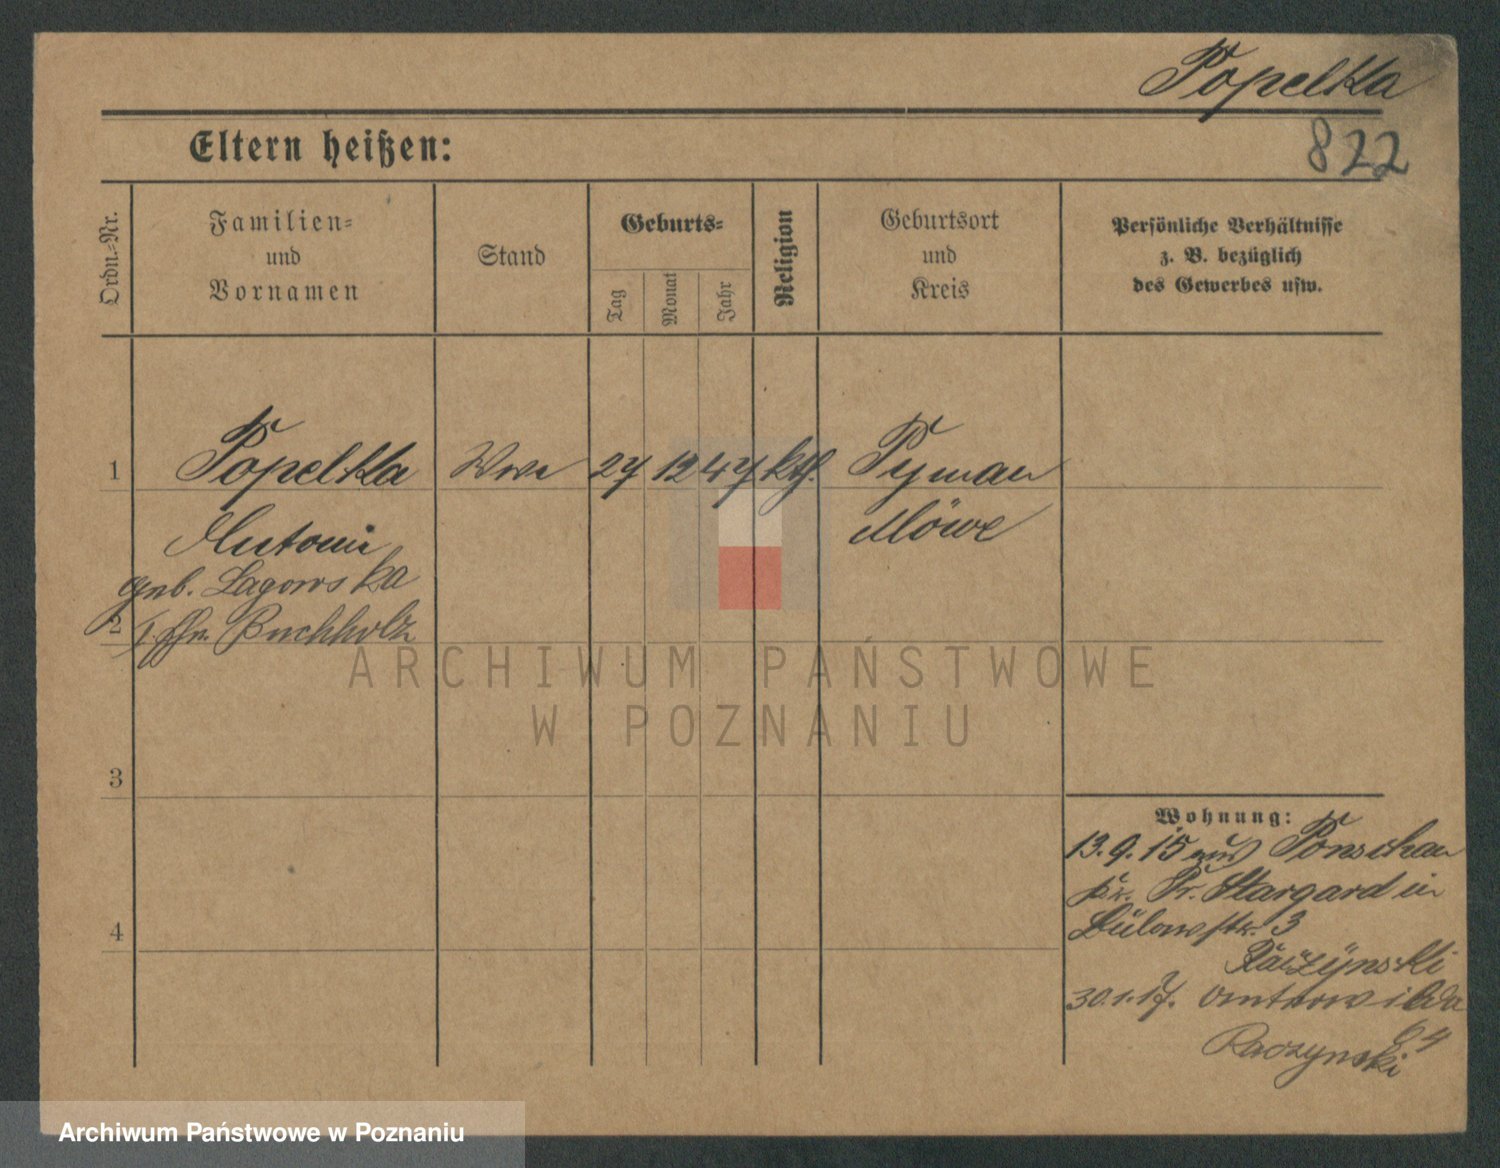 Popelka
822
Eltern heißen:
Ordn.=Nr.
Familien=
und
Vornamen
Stand
Geburts=
Tag
Monat
Jahr
Religion
Geburtsort
und
Kreis
Persönliche Verhältnisse
z. B. bezüglich
des Gewerbes usw.
1 Popelka Wwe 27 12 47 kth. Pyman
Antonie Möwe
geb. Lagowska
2 Buchholz
3
Wohnung:
13.9.15 aus Ponschau
Kr. Pr. Stargard in
4 Bülowstr. 3
Raczynski
30.1.17. Unterwilda
64
Raczynski
ARCHIWUM PAŃSTWOWE
W POZNANIU
Archiwum Państwowe w Poznaniu